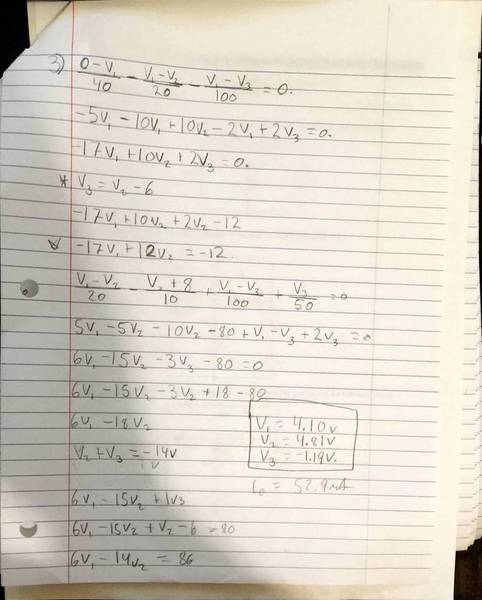 3) (0 - V₁)/40 - (V₁ - V₂)/20 - (V₁ - V₃)/100 = 0.
-5V₁ - 10V₁ + 10V₂ - 2V₁ + 2V₃ = 0.
-17V₁ + 10V₂ + 2V₃ = 0.
* V₃ = V₂ - 6
-17V₁ + 10V₂ + 2V₂ - 12
-17V₁ + 12V₂ = -12.
(V₁ - V₂)/20 - (V₂ + 8)/10 + (V₁ - V₃)/100 + V₃/50 = 0
5V₁ - 5V₂ - 10V₂ - 80 + V₁ - V₃ + 2V₃ = 0
6V₁ - 15V₂ - 3V₃ - 80 = 0
6V₁ - 15V₂ - 3V₂ + 18 - 80
6V₁ - 18V₂
V₂ + V₃ = -14V
6V₁ - 15V₂ + 1V₃
6V₁ - 15V₂ + V₂ - 6 = 80
6V₁ - 14V₂ = 86
V₁ = 4.10V
V₂ = 4.81V
V₃ = -1.19V.
i₀ = 52.9mA